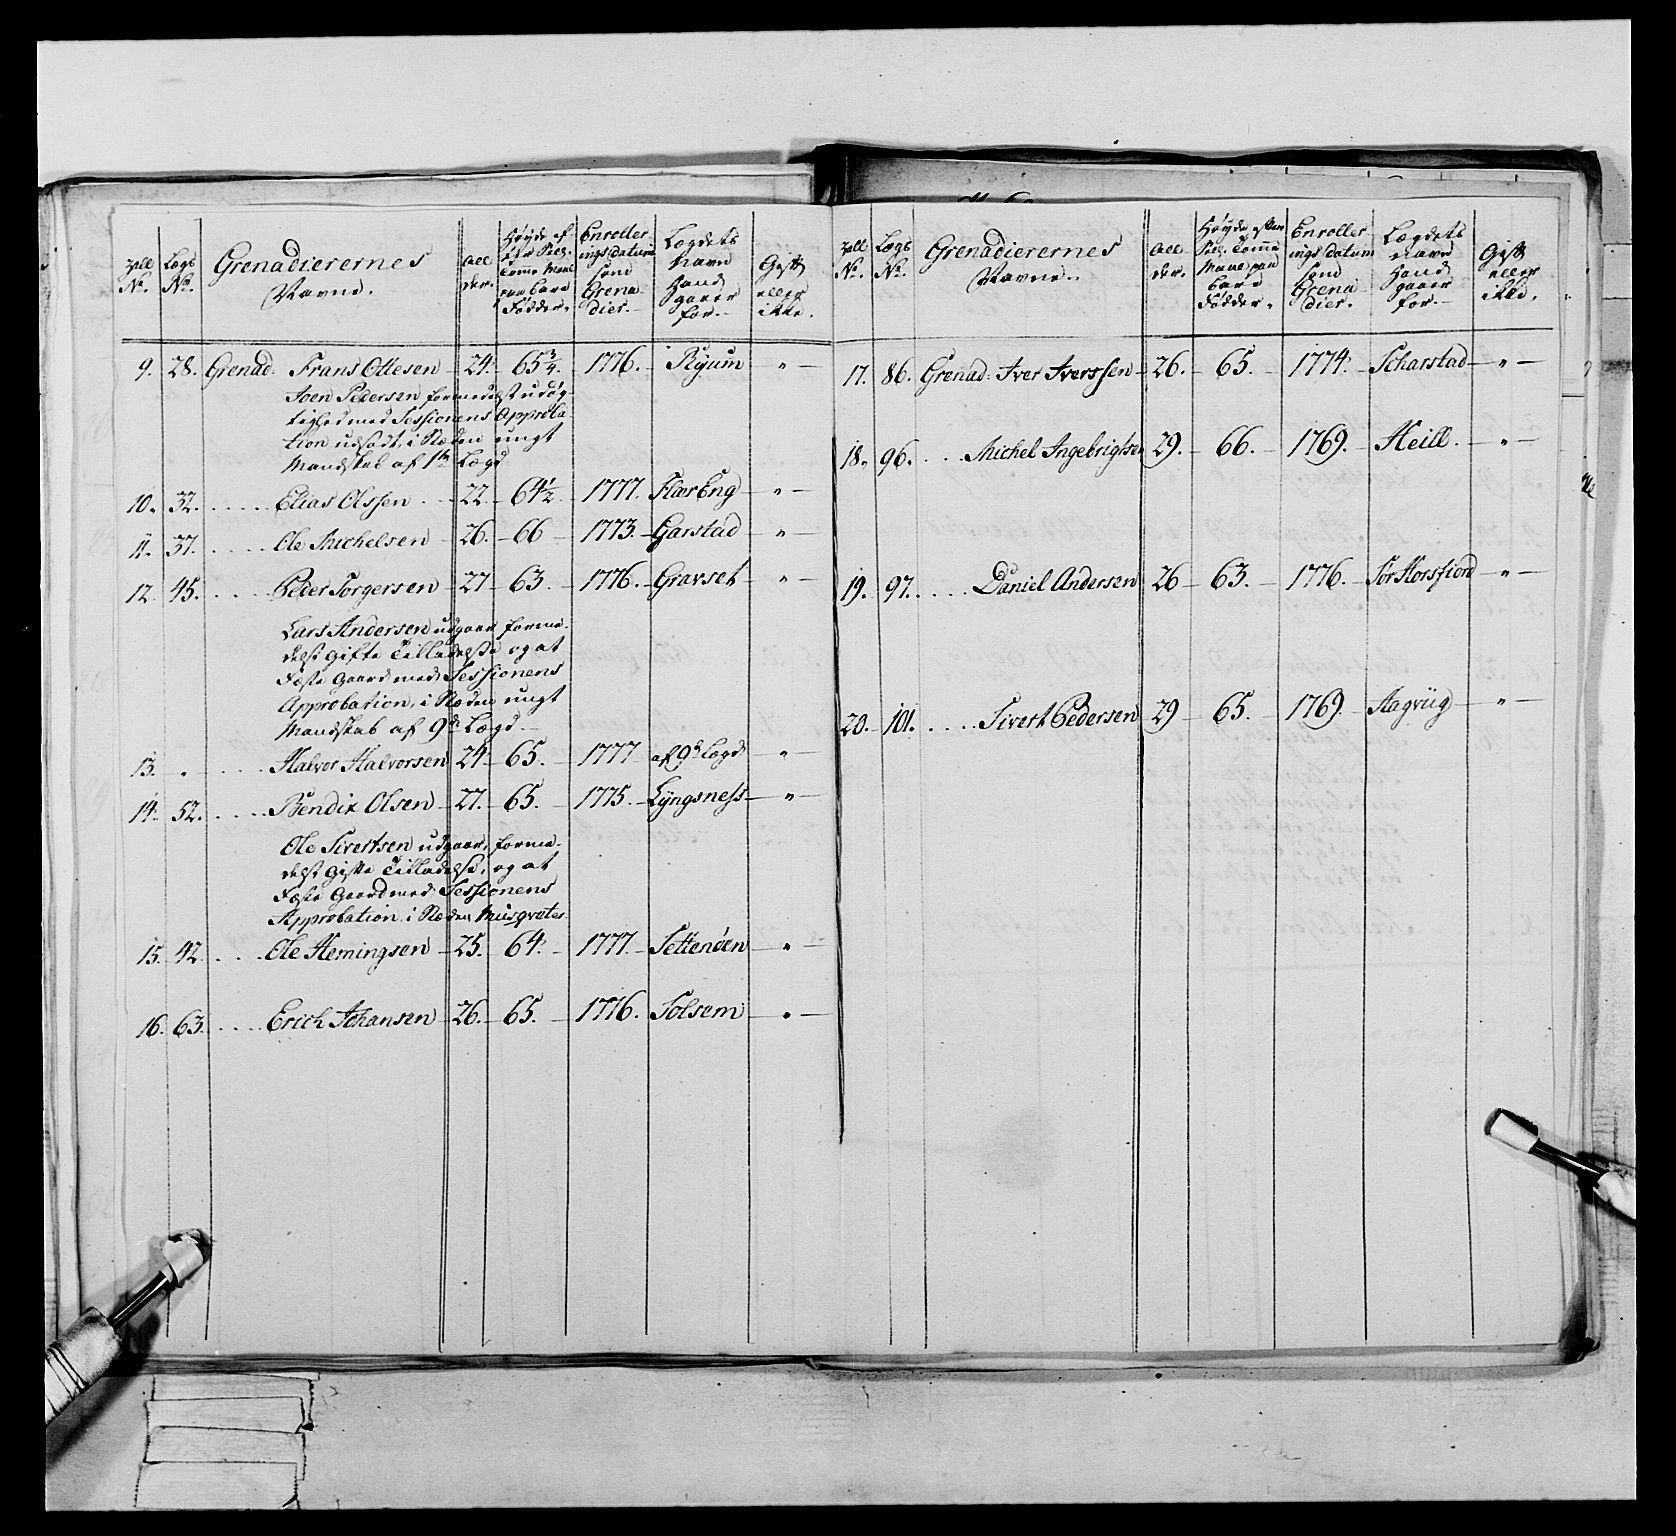 Tall No. | Lægs No. | Grenadierernes Navne. | All der. | Høyde ef ter Sielg. Tomme Maal paa bare Fødder. | Enroller ings Datum som Grena dier. | Lægdets Navn Hand gaaer for. | Gift eller ikke.
9. 28. Grenad. Frans Ottesen 24. 65 3/4. 1776. Ryum " —
Joen Pedersen formedelst udög
tighed med Sessionens Approba
tion udsadt, i Stæden ungt
Mandskab af 1ste Lægd
10. 32. Elias Olssen 22. 64 1/2 1777. FlærEng — " —
11. 37. Ole Michelsen 26. 66 1773. Garstad — " —
12. 45. Peder Torgersen 27 63. 1776. Gravset — " —
Lars Andersen udgaar forme-
delst Gifte Tilladelse og at
Fæste Gaard med Sessionens
Approbation, i Stæden ungt
Mandskab af 9de Lægd.
13. . Halvor Halvorsen 24. 65. 1777 af 9de Lægd "
14. 52. Bendix Olsen 27. 65. 1775. Lyngsness — " —
Ole Sivertsen udgaar, forme-
delst Gifte Tilladelse, og at
Fæste Gaard med Sessionens
Approbation, i Stæden Musqveter.
15. 42. Ole Hemingsen 25. 64. 1777. Settenöen — " —
16. 63. Erich Johansen 26. 65. 1776. Solsem — " —
Tall No. | Lægs No. | Grenadierernes Navne. | All der. | Høyde efter Sielg. Tomme Maal paa bare Fødder. | Enroller ings Datum som Grena dier. | Lægdets Navn Hand gaaer for. | Gift eller ikke.
17. 86. Grenad: Iver Iverssen 26. 65. 1774. Scharstad — " —
18. 96. Michel Ingebrigtsen 29. 66. 1769. Heill. — " —
19. 97. Daniel Andersen 26 63. 1776. Sör Horsfiord — " —
20. 101. Sivert Pedersen 29 65. 1769. Aagviig — " —